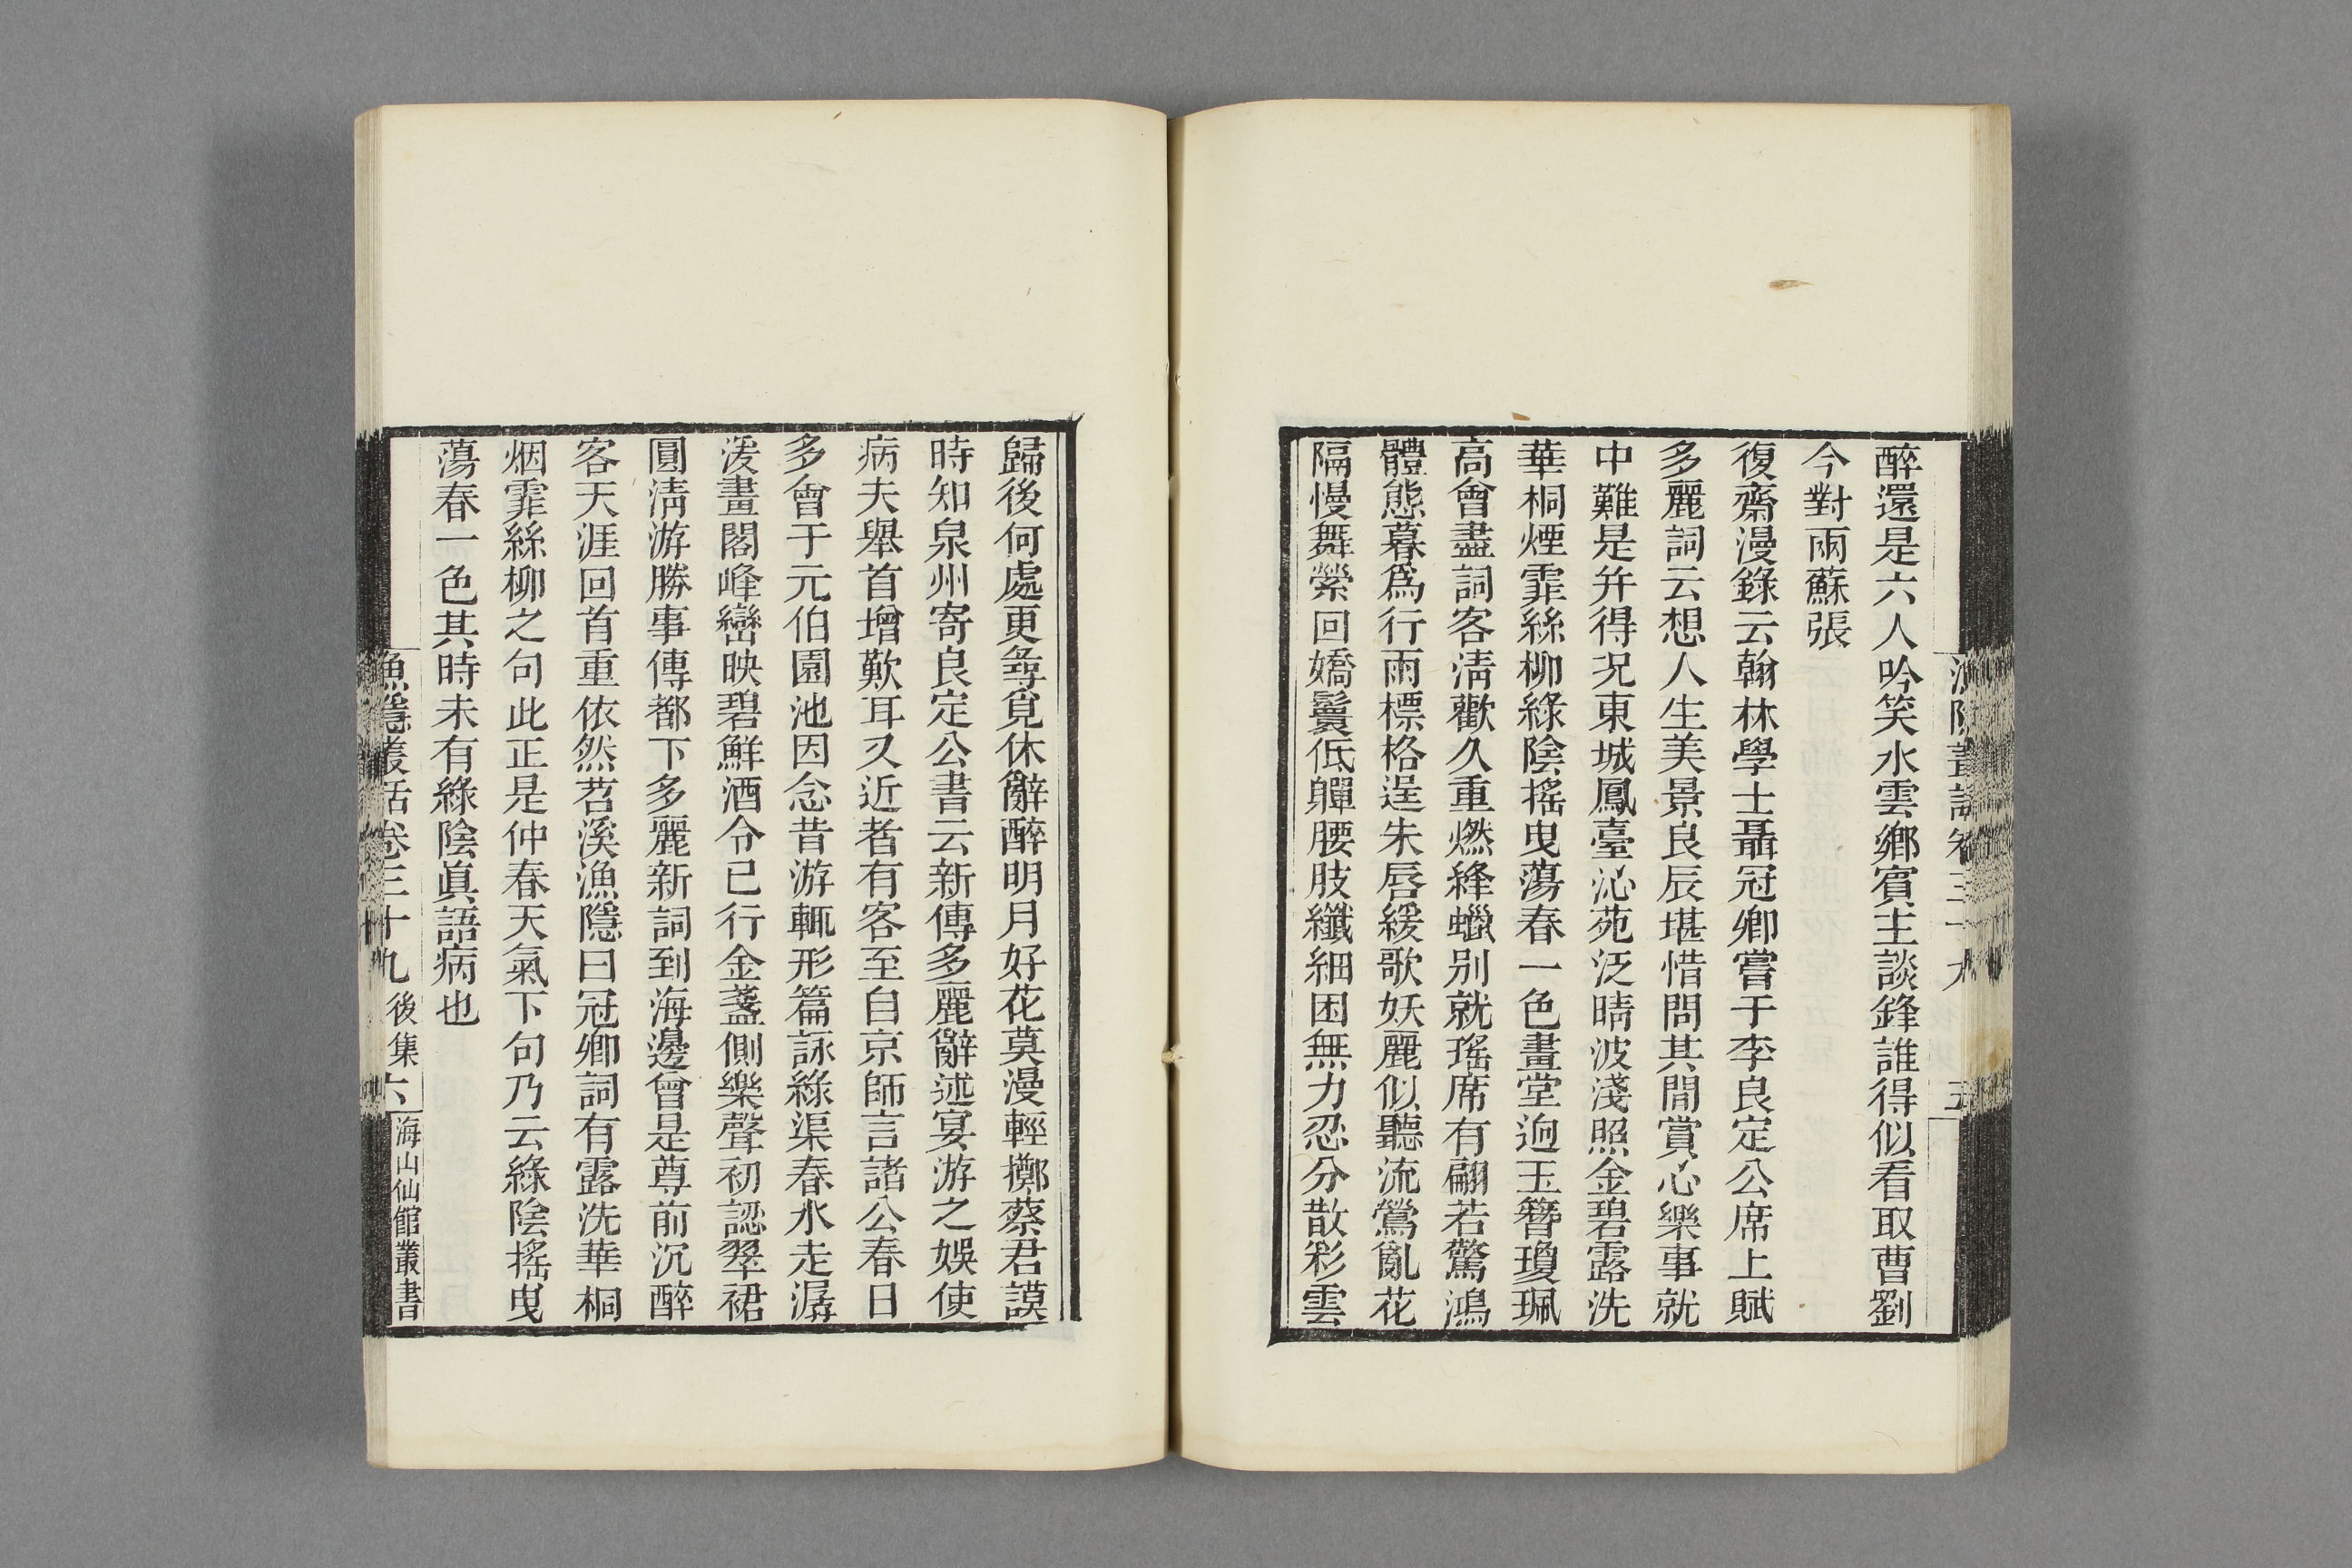 醉還是六人吟笑水雲鄉賓主談鋒誰得似看取曹劉
今對兩蘇張
復齋漫錄云翰林學士聶冠卿嘗于李良定公席上賦
多麗詞云想人生美景良辰堪惜問其閒賞心樂事就
中難是幷得况東城鳳臺沁苑泛晴波淺照金碧露洗
華桐煙霏絲柳綠陰搖曳蕩春一色畫堂逈玉簪瓊珮
高會盡詞客淸歡久重燃絳蠟别就瑤席有翩若驚鴻
體態暮爲行雨標格逞朱唇緩歌妖麗似聽流鶯亂花
隔慢舞縈回嬌鬟低軃腰肢纖細困無力忍分散彩雲
歸後何處更尋覓休辭醉明月好花莫漫輕擲蔡君謨
時知泉州寄良定公書云新傳多麗辭述宴游之娛使
病夫舉首增歎耳又近者有客至自京師言諸公春日
多會于元伯園池因念昔游輒形篇詠綠渠春水走潺
湲畫閣峰巒映碧鮮酒令已行金盞側樂聲初認翠裙
圓淸游勝事傳都下多麗新詞到海邊曾是尊前沉醉
客天涯回首重依然苕溪漁隱曰冠卿詞有露洗華桐
烟霏絲柳之句此正是仲春天氣下句乃云綠陰搖曳
蕩春一色其時未有綠陰眞語病也
漁隱叢話卷三十九 後集 六 海山仙館叢書